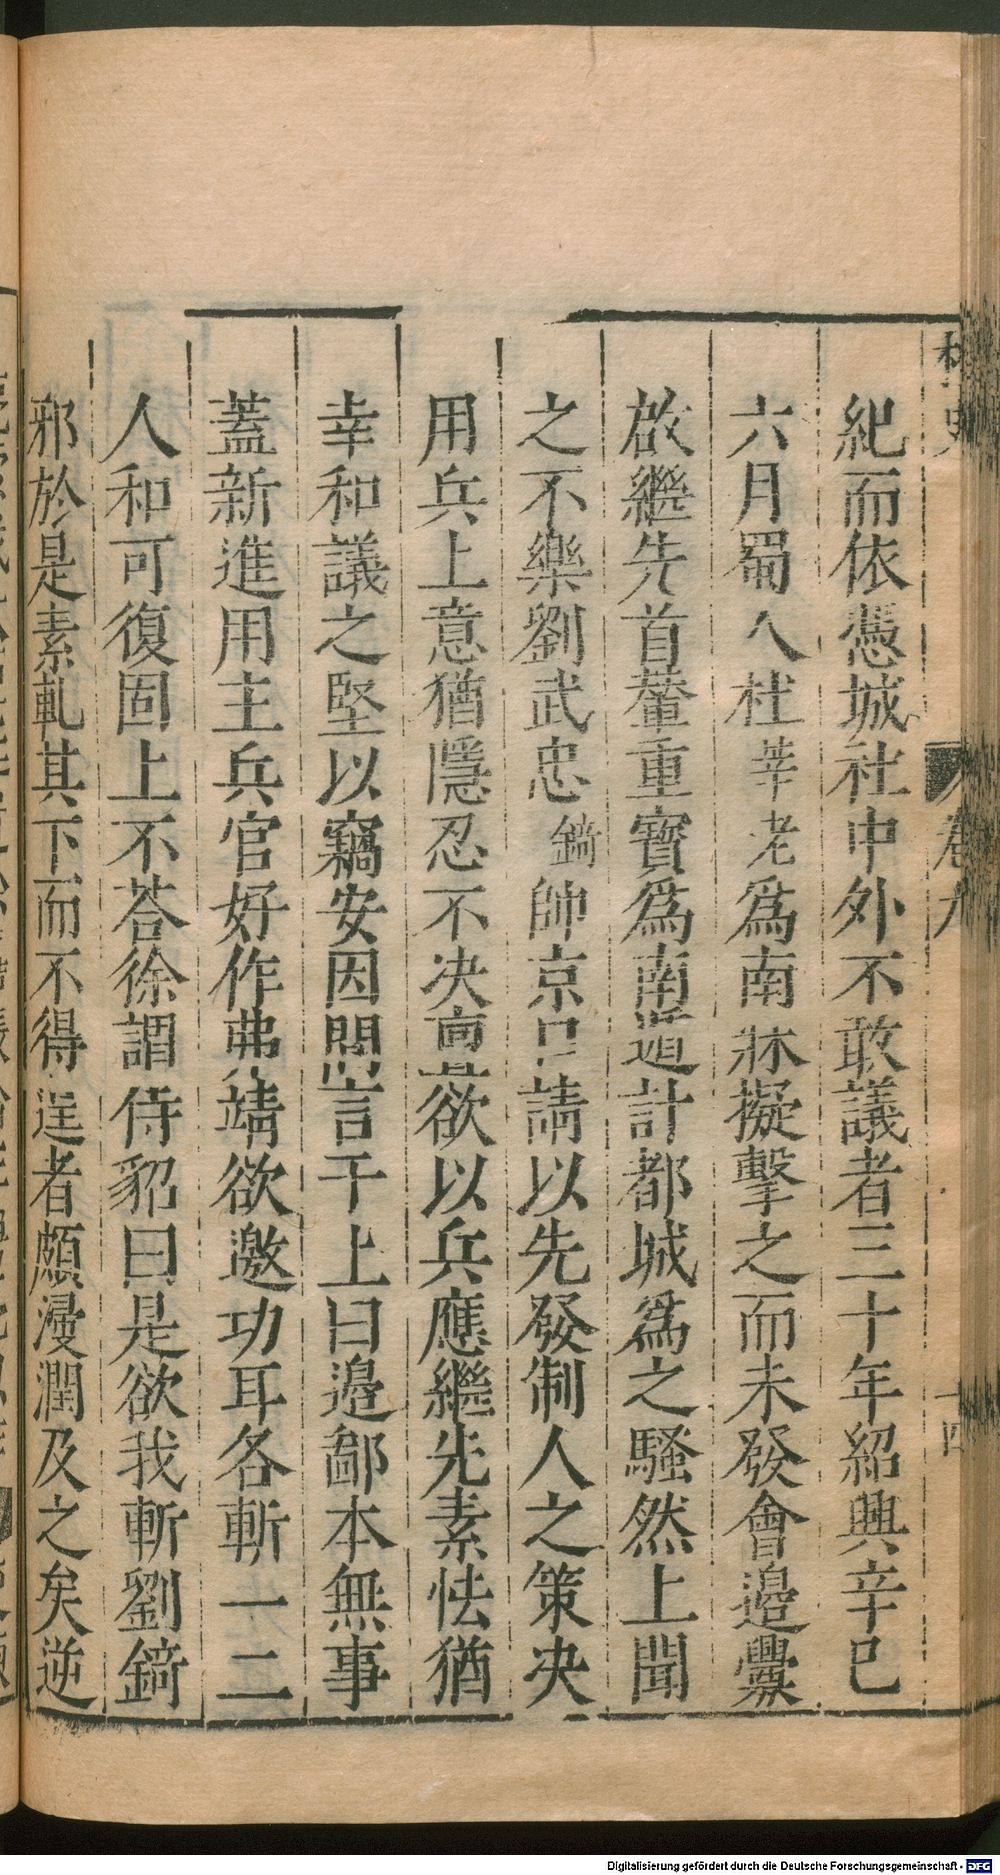 桯史
卷九
十四
紀而依憑城社中外不敢議者三十年紹興辛巳
六月蜀人杜莘老爲南牀擬擊之而未發會邉釁
啟繼先首輦重寶爲南遁計都城爲之騷然上聞
之不樂劉武忠錡帥京口請以先發制人之策决
用兵上意猶隱忍不决亶欲以兵應繼先素怯猶
幸和議之堅以竊安因間言于上曰邉鄙本無事
蓋新進用主兵官好作弗靖欲邀功耳各斬一二
人和可復固上不荅徐謂侍貂曰是欲我斬劉錡
邪於是素軋其下而不得逞者頗浸潤及之矣逆
Digitalisierung gefördert durch die Deutsche Forschungsgemeinschaft - DFG